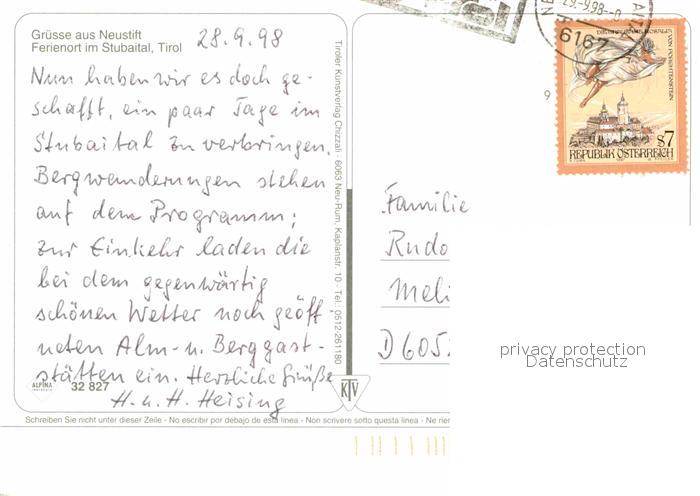 Grüsse aus Neustift
Ferienort im Stubaital, Tirol
28.9.98
Nun haben wir es doch ge-
schafft, ein paar Tage im
Stubaital zu verbringen.
Bergwanderungen stehen
auf dem Programm;
zur Einkehr laden die
bei dem gegenwärtig
schönen Wetter noch geöff-
neten Alm- u. Berggast-
stätten ein. Herzliche Grüße
H. u. H. Heising
ALPINA
32 827
Tiroler Kunstverlag Chizzali · 6063 Neu-Rum, Kaplanstr. 10 · Tel. 0512-261180
KTV
Schreiben Sie nicht unter dieser Zeile - No escribir por debajo de esta linea - Non scrivere sotto questa linea - Ne rien
29.-9.98--0
6167
VON FORCHTENSTEIN
S7
REPUBLIK ÖSTERREICH
9
Familie
Rudo
Meli
D 6052
privacy protection
Datenschutz